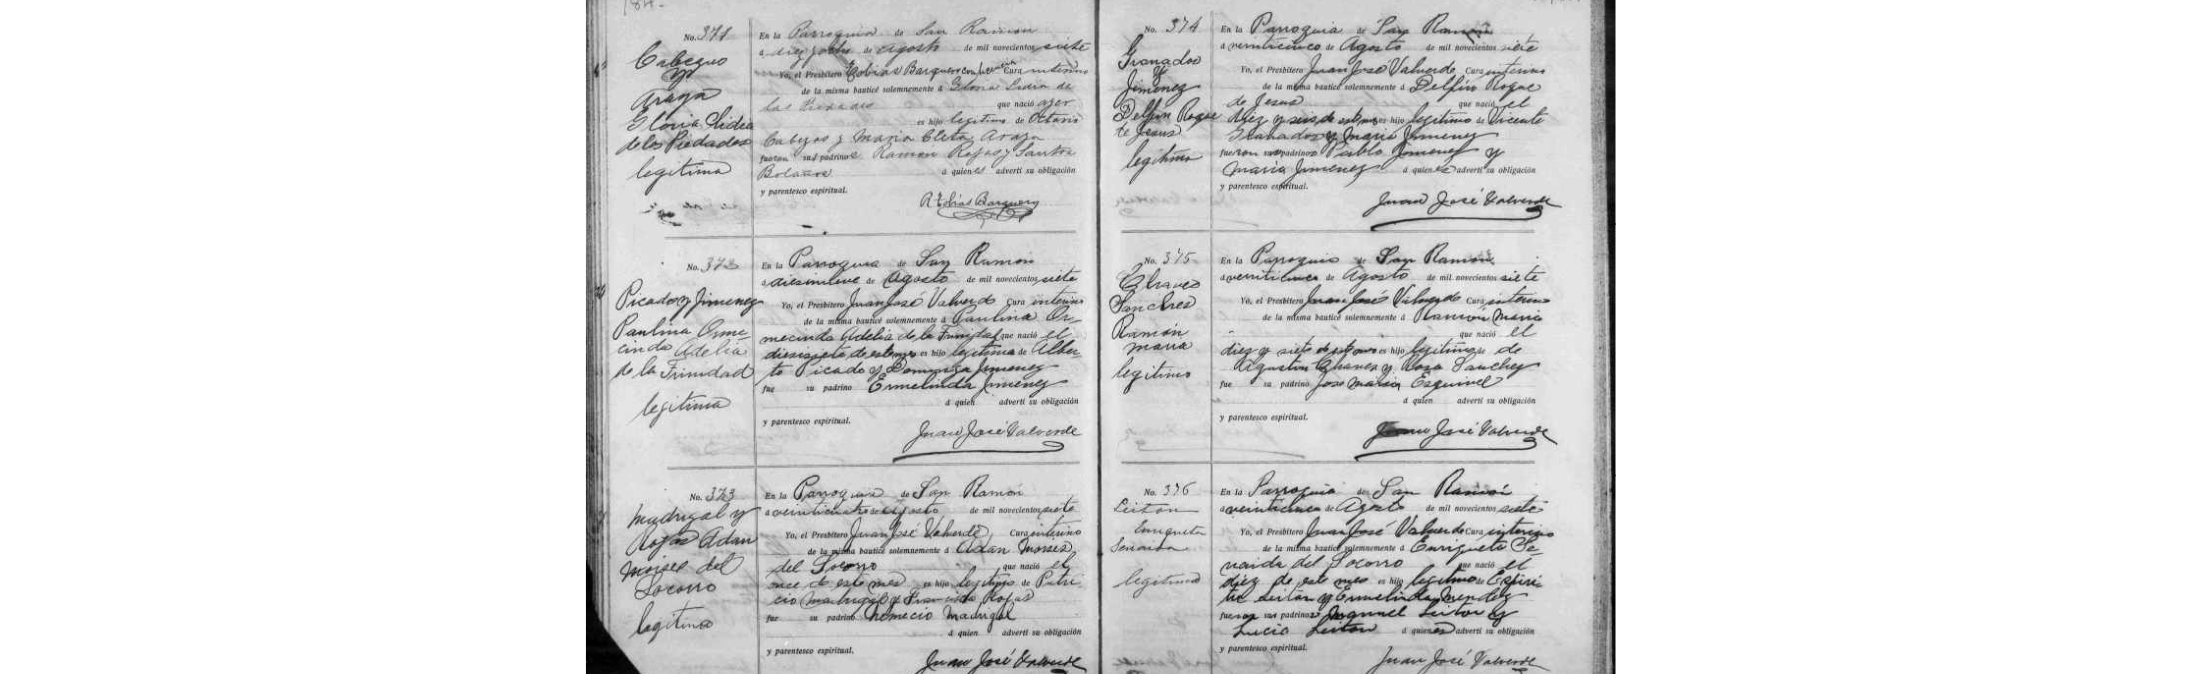 184.
No. 371
Cabezas
y
Araya
Gloria Lidia
de las Piedades
legitima
En la Parroquia de San Ramón
a dieziocho de agosto de mil novecientos siete
Yo, el Presbítero Tobias Barquero con licencia Cura interino
de la misma bauticé solemnemente á Gloria Lidia de
las Piedades que nació ayer
es hijo legitimo de Octavio
Cabezas y Maria Cleta Araya
fueron sus padrinos Ramon Rojas y Santos
Bolaños á quienes advertí su obligación
y parentesco espiritual.
Tobías Barquero
No. 372
Picado y Jimenez
Paulina Orme-
cinda Adelia
de la Trinidad
legitima
En la Parroquia de San Ramón
a diesinueve de Agosto de mil novecientos siete
Yo, el Presbítero Juan José Valverde Cura interino
de la misma bauticé solemnemente á Paulina Or-
mecinda Adelia de la Trinidad que nació el
diesisiete de este mes es hijo legitima de Alber-
to Picado y Dominga Jimenez
fue su padrino Ermelinda Jimenez
á quien advertí su obligación
y parentesco espiritual.
Juan José Valverde
No. 373
Madrigal y
Rojas Adan
Moises del
Socorro
legitimo
En la Parroquia de San Ramón
a veinticuatro de Agosto de mil novecientos siete
Yo, el Presbítero Juan José Valverde Cura interino
de la misma bauticé solemnemente á Adan Moises
del Socorro que nació el
once de este mes es hijo legitimo de Patri-
cio Madrigal y Francisca Rojas
fue su padrino Nemecio Madrigal
á quien advertí su obligación
y parentesco espiritual.
Juan José Valverde
No. 374
Granados
y
Jimenez
Delfin Roque
de Jesus
legitimo
En la Parroquia de San Ramón
a veinticinco de Agosto de mil novecientos siete
Yo, el Presbítero Juan José Valverde Cura interino
de la misma bauticé solemnemente á Delfin Roque
de Jesus que nació el
diez y seis de este mes es hijo legitimo de Vicente
Granados y Maria Jimenez
fueron sus padrinos Pablo Jimenez y
Maria Jimenez á quienes advertí su obligación
y parentesco espiritual.
Juan José Valverde
No. 375
Chaves
Sanches
Ramón
Maria
legitimo
En la Parroquia de San Ramón
a veinticinco de Agosto de mil novecientos siete
Yo, el Presbítero Juan José Valverde Cura interino
de la misma bauticé solemnemente á Ramon Maria
que nació el
diez y siete de este mes es hijo legitimo de
Agustin Chaves y Rosa Sanchez
fue su padrino Jose Maria Esquivel
á quien advertí su obligación
y parentesco espiritual.
Juan José Valverde
No. 376
Leiton
Enriqueta
Senaida
legitima
En la Parroquia de San Ramón
a veinticinco de Agosto de mil novecientos siete
Yo, el Presbítero Juan José Valverde Cura interino
de la misma bauticé solemnemente á Enriqueta Se-
naida del Socorro que nació el
diez de este mes es hijo legitimo de Espiri-
tu Leiton y Ermelinda Mendez
fueron sus padrinos Manuel Leiton y
Lucia Leiton á quienes advertí su obligación
y parentesco espiritual.
Juan José Valverde